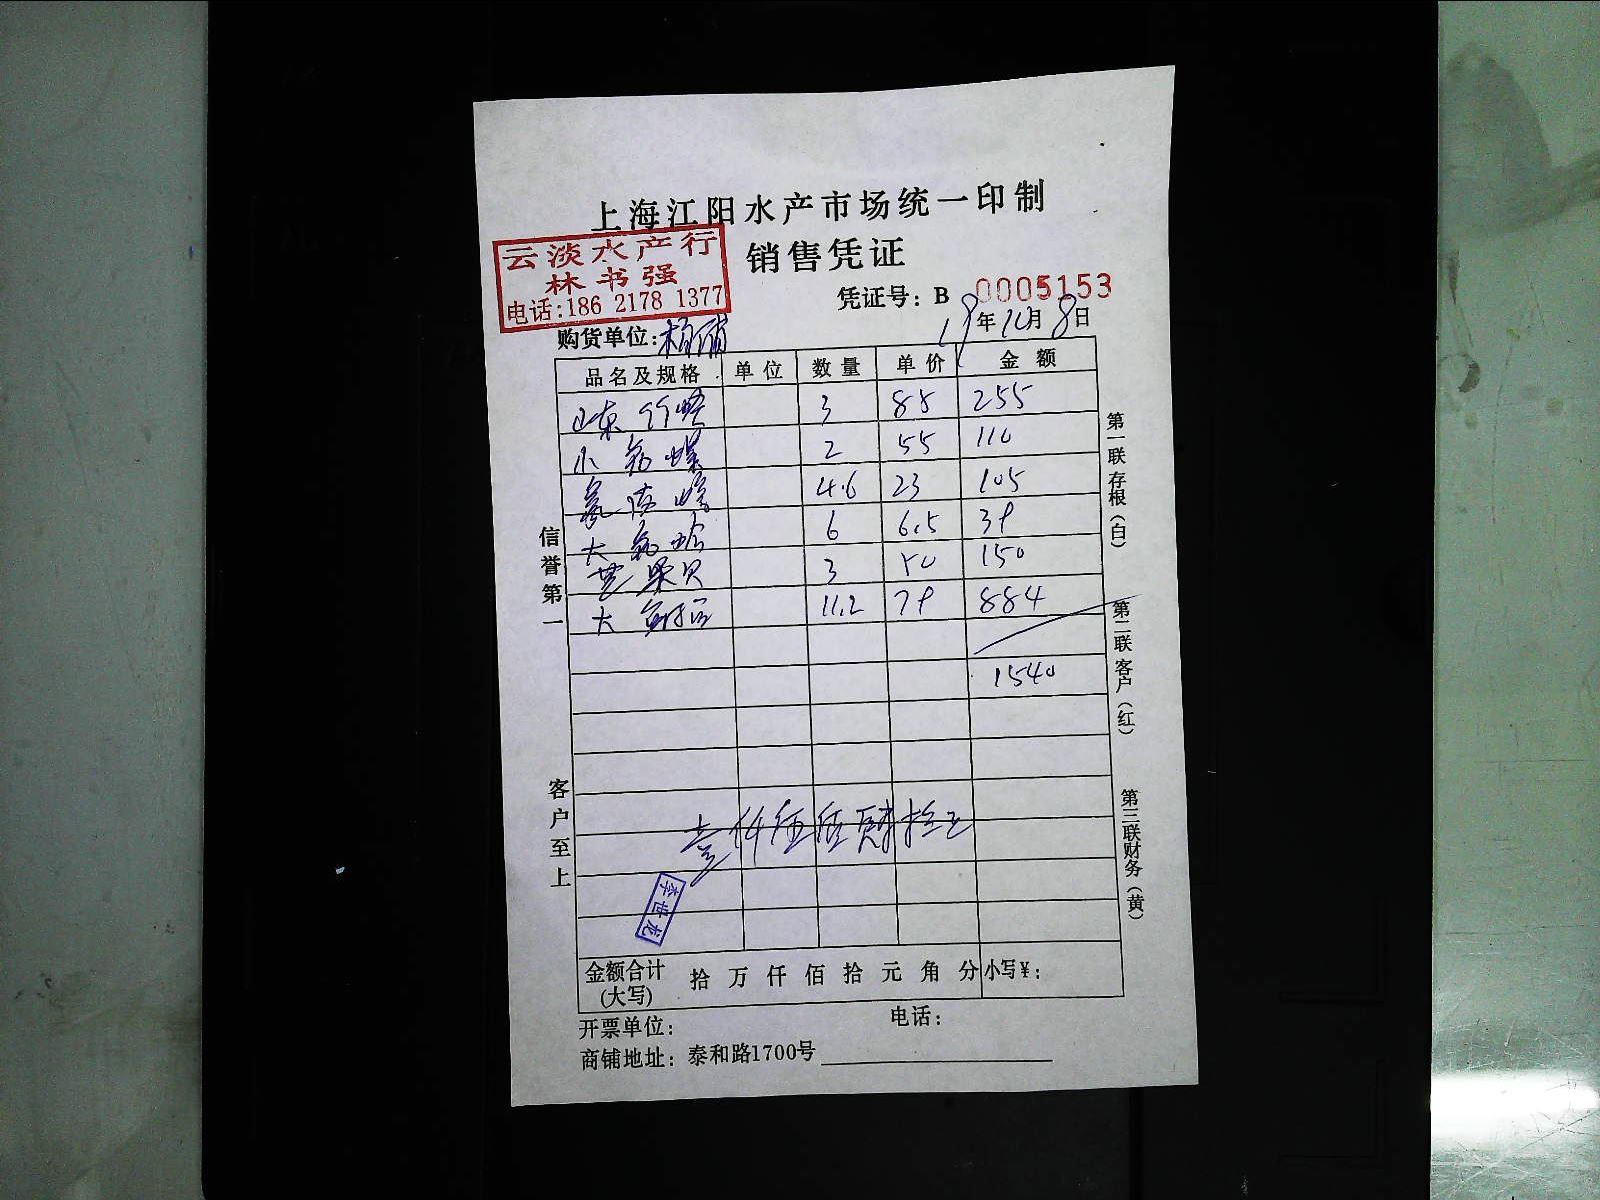 上海江阳水产市场统一印制
销售凭证
云淡水产行
林书强
电话:186 2178 1377
凭证号: B 0005153
购货单位:
年 月 8 日
品名及规格 单位 数量 单价 金额
山东竹蛏 3 85 255
小 螺 2 55 110
4.6 23 105
大 6 6.5 39
贝 3 50 150
大 11.2 79 884
1540
壹仟伍佰肆拾正
李世龙
金额合计(大写) 拾 万 仟 佰 拾 元 角 分 小写¥:
开票单位: 电话:
商铺地址: 泰和路1700号
信誉第一
客户至上
第一联 存根(白)
第二联 客户(红)
第三联 财务(黄)